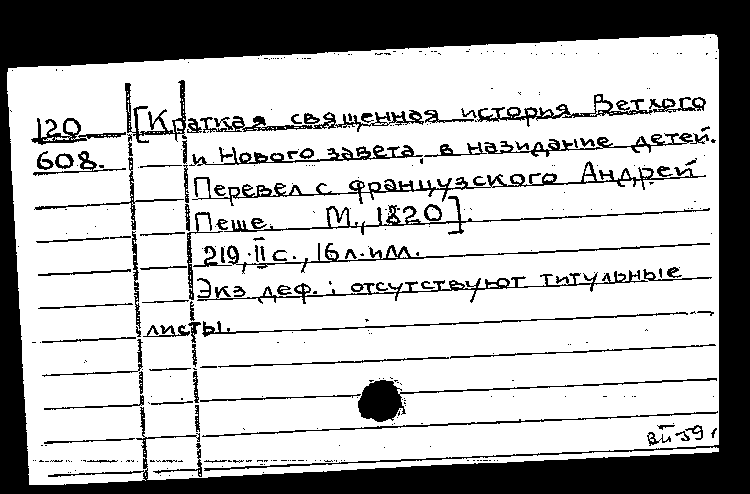 120 [Краткая священная история Ветхого
608. и Нового завета, в назидание детей.
Перевел с французского Андрей
Пеше. М., 1820].
219, II с., 16 л. илл.
Экз деф.: отсутствуют титульные
листы.